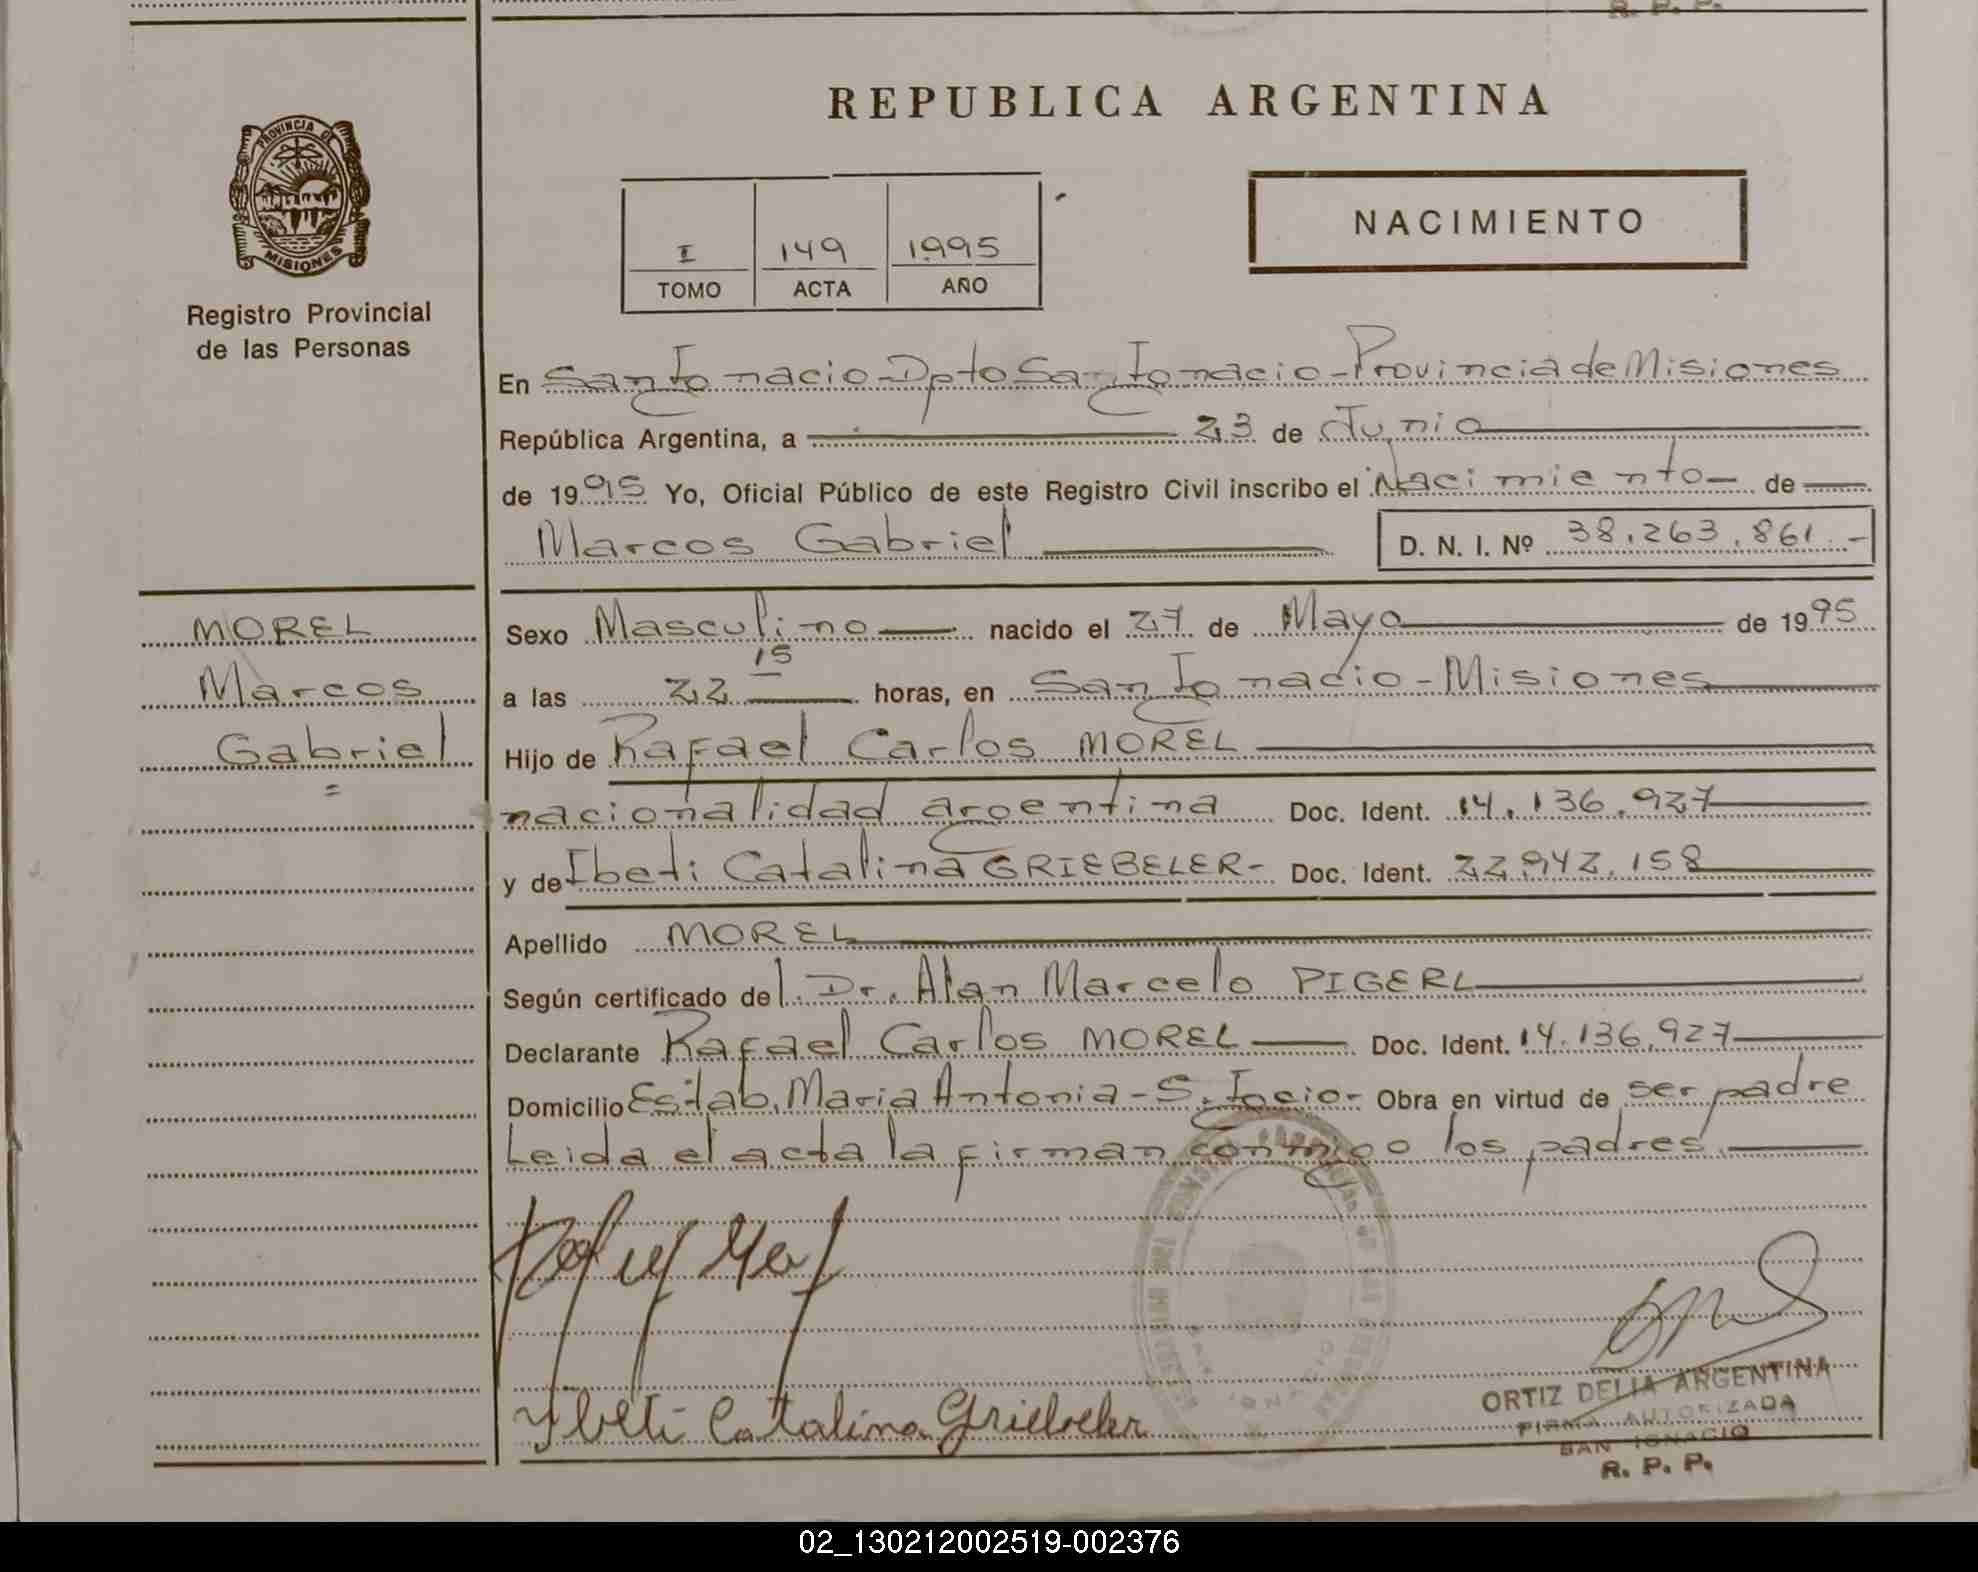 R. P. P.
PROVINCIA DE
MISIONES
Registro Provincial
de las Personas
REPUBLICA ARGENTINA
I 149 1995
TOMO ACTA AÑO
NACIMIENTO
En San Ignacio - Dpto San Ignacio - Provincia de Misiones
República Argentina, a 23 de Junio
de 1995 Yo, Oficial Público de este Registro Civil inscribo el Nacimiento de
Marcos Gabriel D. N. I. Nº 38.263.861.-
MOREL
Marcos
Gabriel
=
Sexo Masculino nacido el 27 de Mayo de 1995
a las 22 15 horas, en San Ignacio - Misiones
Hijo de Rafael Carlos MOREL
nacionalidad argentina Doc. Ident. 14.136.927
y de Ibeti Catalina GRIEBELER- Doc. Ident. 22.942.158
Apellido MOREL
Según certificado del Dr. Alan Marcelo PIGERL
Declarante Rafael Carlos MOREL Doc. Ident. 14.136.927
Domicilio Estab. Maria Antonia - S. Igcio- Obra en virtud de ser padre
Leida el acta la firman conmigo los padres.
Ybeti Catalina Griebeler
ORTIZ DELIA ARGENTINA
FIRMA AUTORIZADA
SAN IGNACIO
R. P. P.
02_130212002519-002376